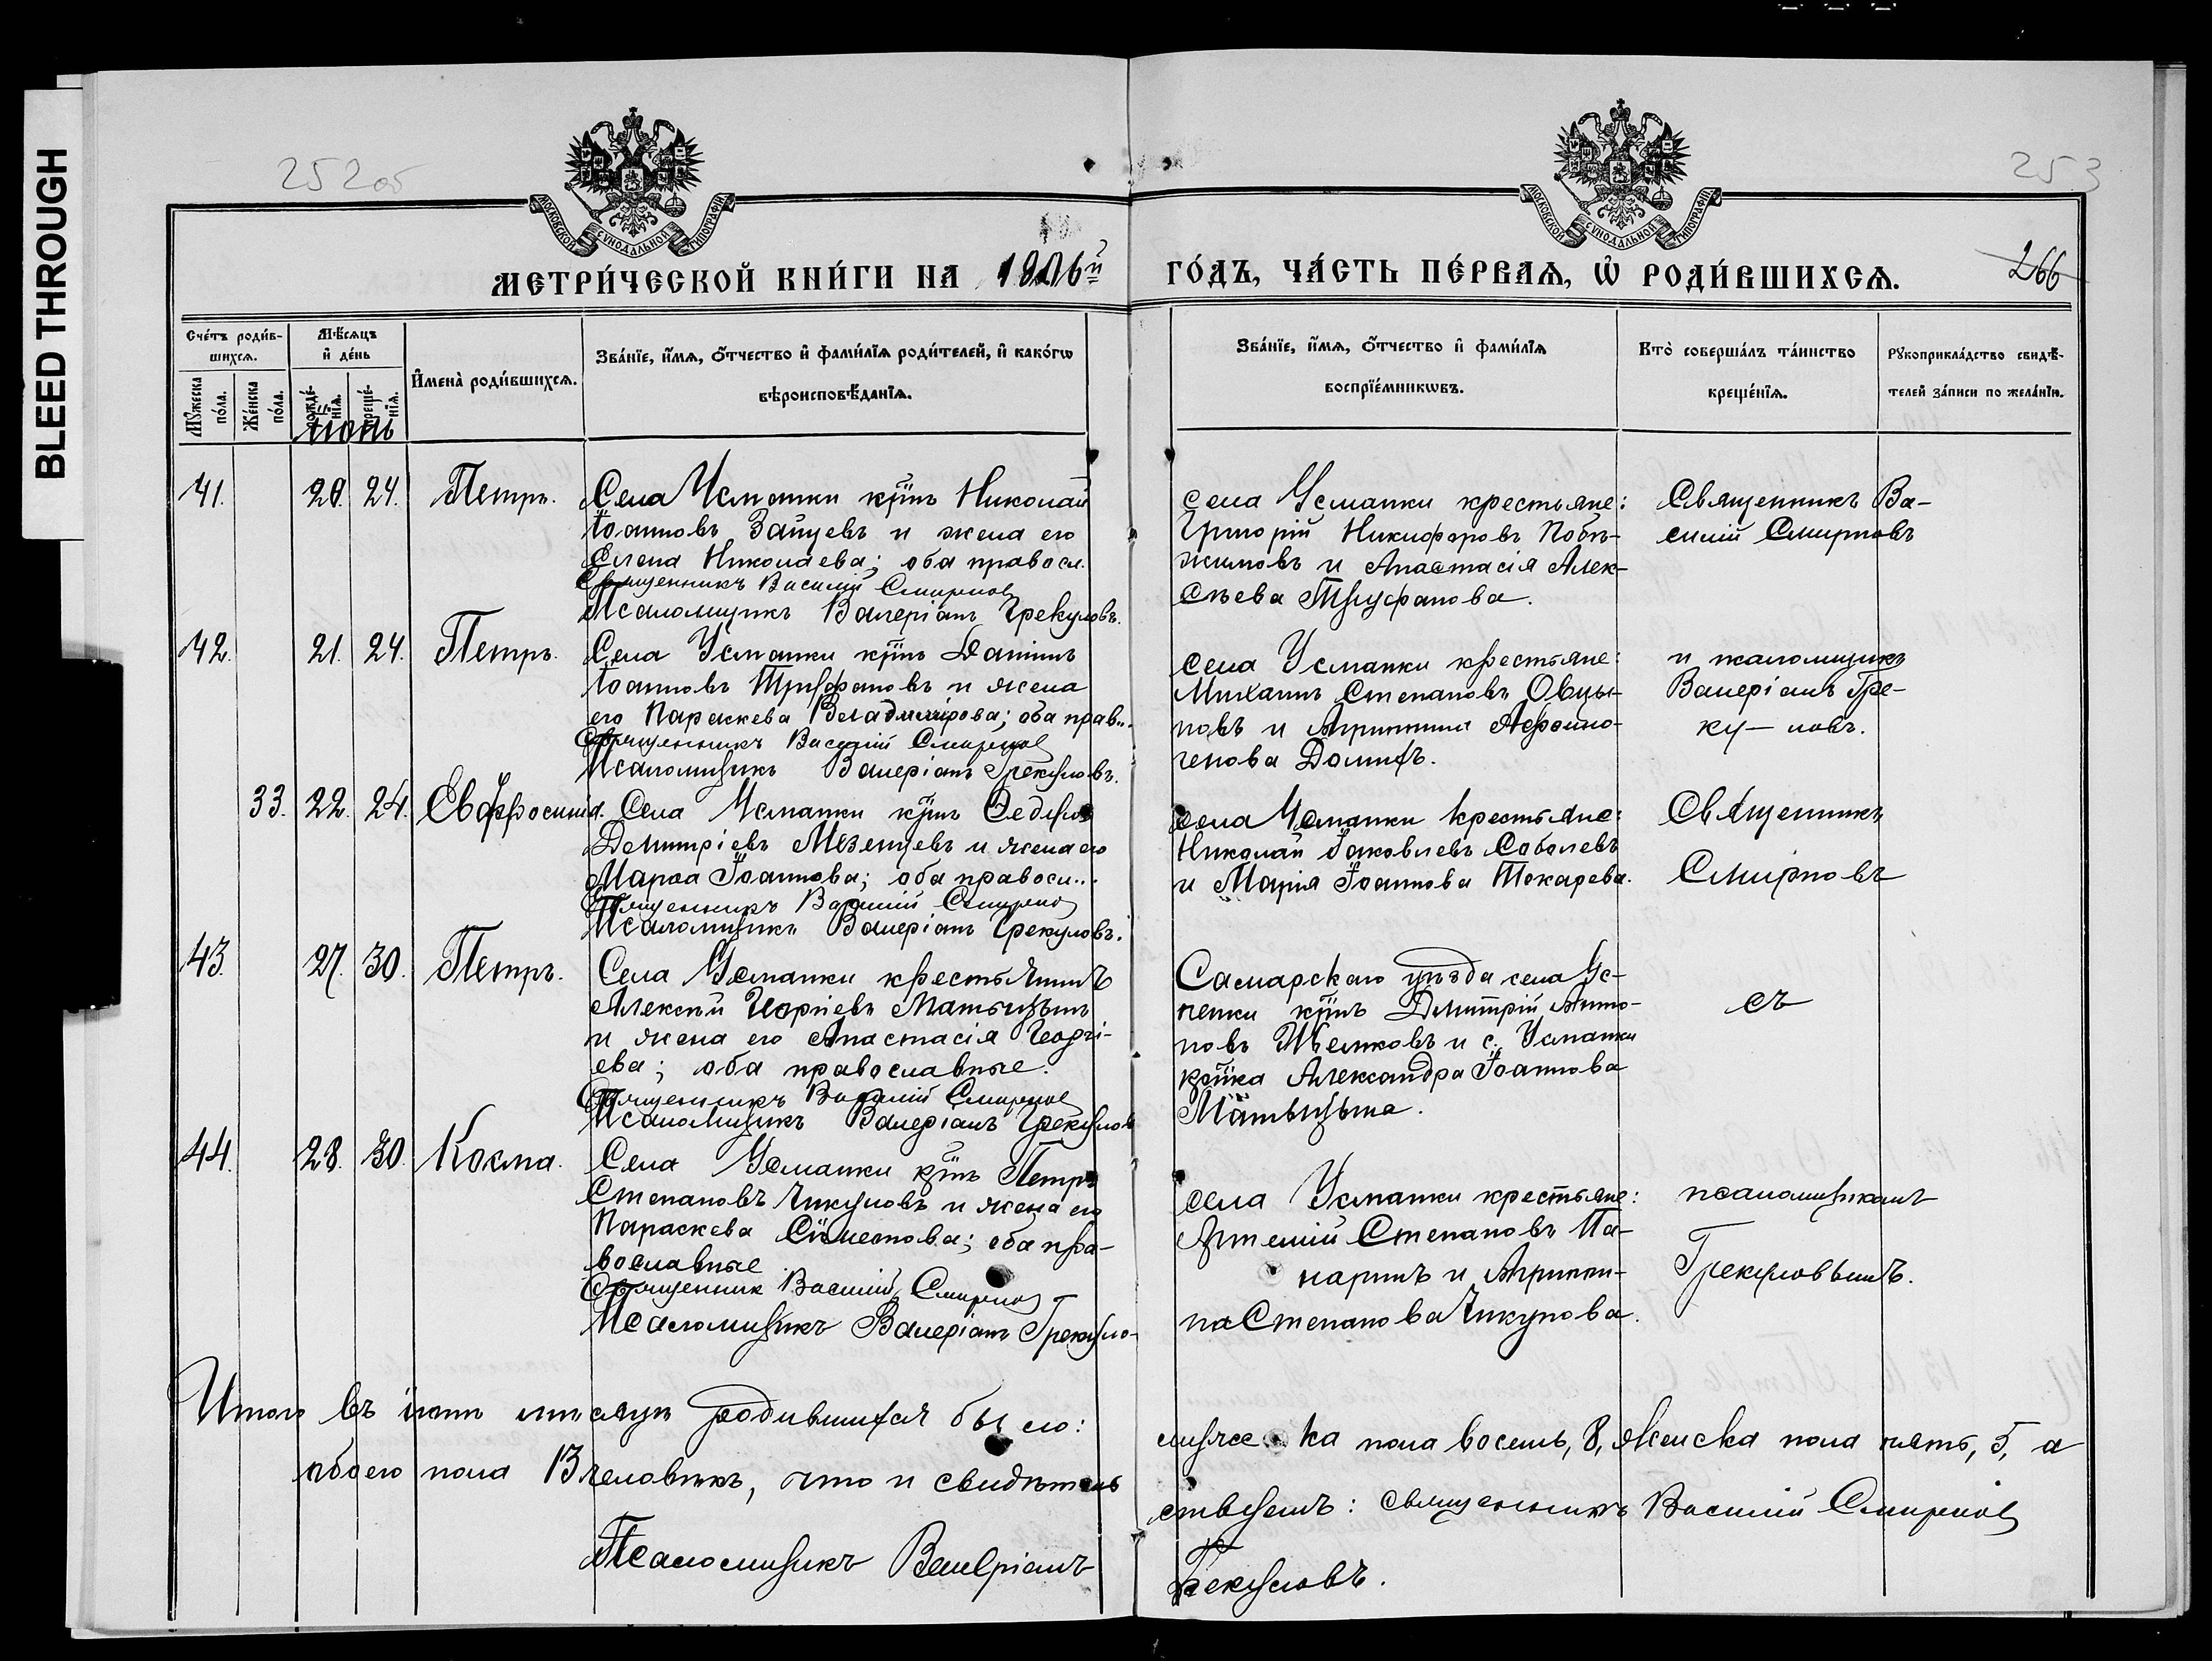 BLEED THROUGH
252об
253
266
МОСКОВСКОЙ СУНОДАЛЬНОЙ ТИПОГРАФІИ
МОСКОВСКОЙ СУНОДАЛЬНОЙ ТИПОГРАФІИ
МЕТРИ́ЧЕСКОЙ КНИ́ГИ НА 1906й
ГО́ДЪ, ЧА́СТЬ ПЕ́РВАѦ, Ѡ҆ РОДИ́ВШИХСѦ.
Сче́тъ роди́в-
шихсѧ.
Мꙋжеска по́ла.
Же́нска по́ла.
Мѣ́сѧцъ
и҆ де́нь
рожде́-нїѧ.
креще́-нїѧ.
Июнь
И҆мена̀ роди́вшихсѧ.
Зва́нїе, и҆́мѧ, ѻ҆́тчество и҆ фами́лїѧ роди́телей, и҆ како́гѡ
вѣроисповѣ́данїѧ.
Зва́нїе, и҆́мѧ, ѻ҆́тчество и҆ фами́лїѧ
воспрїе́мникѡвъ.
Кто̀ соверша́лъ та́инство
креще́нїѧ.
Рꙋкоприкла́дство свидѣ́-
телей за́писи по жела́нїю.
41. 20. 24. Петръ.
Села Усманки крнъ Николай
Іоанновъ Зайцевъ и жена его
Елена Николаева; оба правосл.
Священникъ Василій Смирнов
Псаломщикъ Валеріанъ Грекуловъ.
села Усманки крестьяне:
Григорій Никифоровъ Побѣ-
жимовъ и Анастасія Алек-
сѣева Труфанова.
Священникъ Ва-
силій Смирновъ
42. 21. 24. Петръ.
Села Усманки крнъ Даніилъ
Іоанновъ Трифановъ и жена
его Параскева Владимірова; оба прав..
Священникъ Василій Смирнов
Псаломщикъ Валеріанъ Грекуловъ.
села Усманки крестьяне:
Михаилъ Степановъ Овцы-
новъ и Агриппина Афоно-
генова
и псаломщикъ
Валеріанъ Гре-
ку-ловъ.
33. 22. 24. Евфросинія.
Села Усманки крнъ Ѳеодоръ
Димитріевъ Мезенцевъ и жена его
Марѳа Іоаннова; оба правосл...
Священникъ Василій Смирнов
Псаломщикъ Валеріанъ Грекуловъ.
села Усманки крестьяне:
Николай Іаковлевъ Соболевъ
и Марія Іоаннова Токарева.
Священникъ
Смирновъ
43. 27. 30. Петръ.
Села Усманки крестьянинъ
Алексѣй Георгіевъ Матыцынъ
и жена его Анастасія Георгі-
ева; оба православные.
Священникъ Василій Смирнов
Псаломщикъ Валеріанъ Грекулов
Самарскаго уѣзда села Ус-
пенки крнъ Димитрій Анто-
новъ и с. Усманки
крнка Александра Іоаннова
Матыцына.
съ
44. 28. 30. Косма.
Села Усманки крнъ Петръ
Степановъ Чикуновъ и жена его
Параскева Симеонова; оба пра-
вославные
Священник Василій Смирнов
Псаломщикъ Валеріанъ Грекуло-
села Усманки крестьяне:
Артемій Степановъ Па-
наринъ и Агриппи-
на Степанова Чикунова.
псаломщикомъ
Грекуловымъ.
Итого въ іюнѣ мѣсяцѣ родившихся было:
мужеска пола восемь, 8, женска пола пять, 5, а
обоего пола 13 человѣкъ, что и свидѣтель
ствуемъ: священникъ Василій Смирнов
Псаломщикъ Валеріанъ
Грекуловъ.